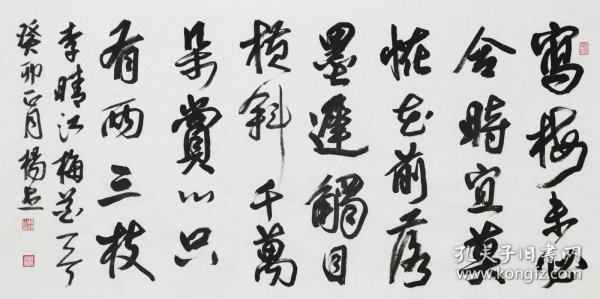 寫梅未必
合時宜莫
恠花前落
墨遲觸目
横斜千萬
朵賞心只
有兩三枝
李晴江梅花
癸卯正月楊
孔夫子旧书网
www.kongfz.com